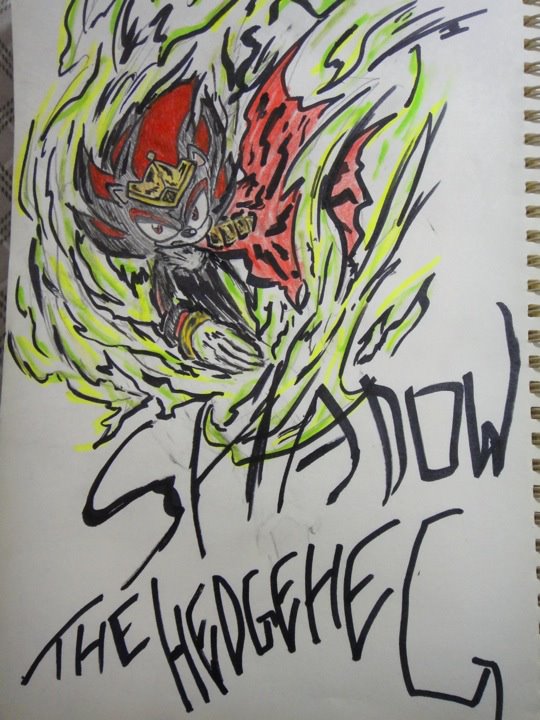 SHADOW
THE HEDGEHEG